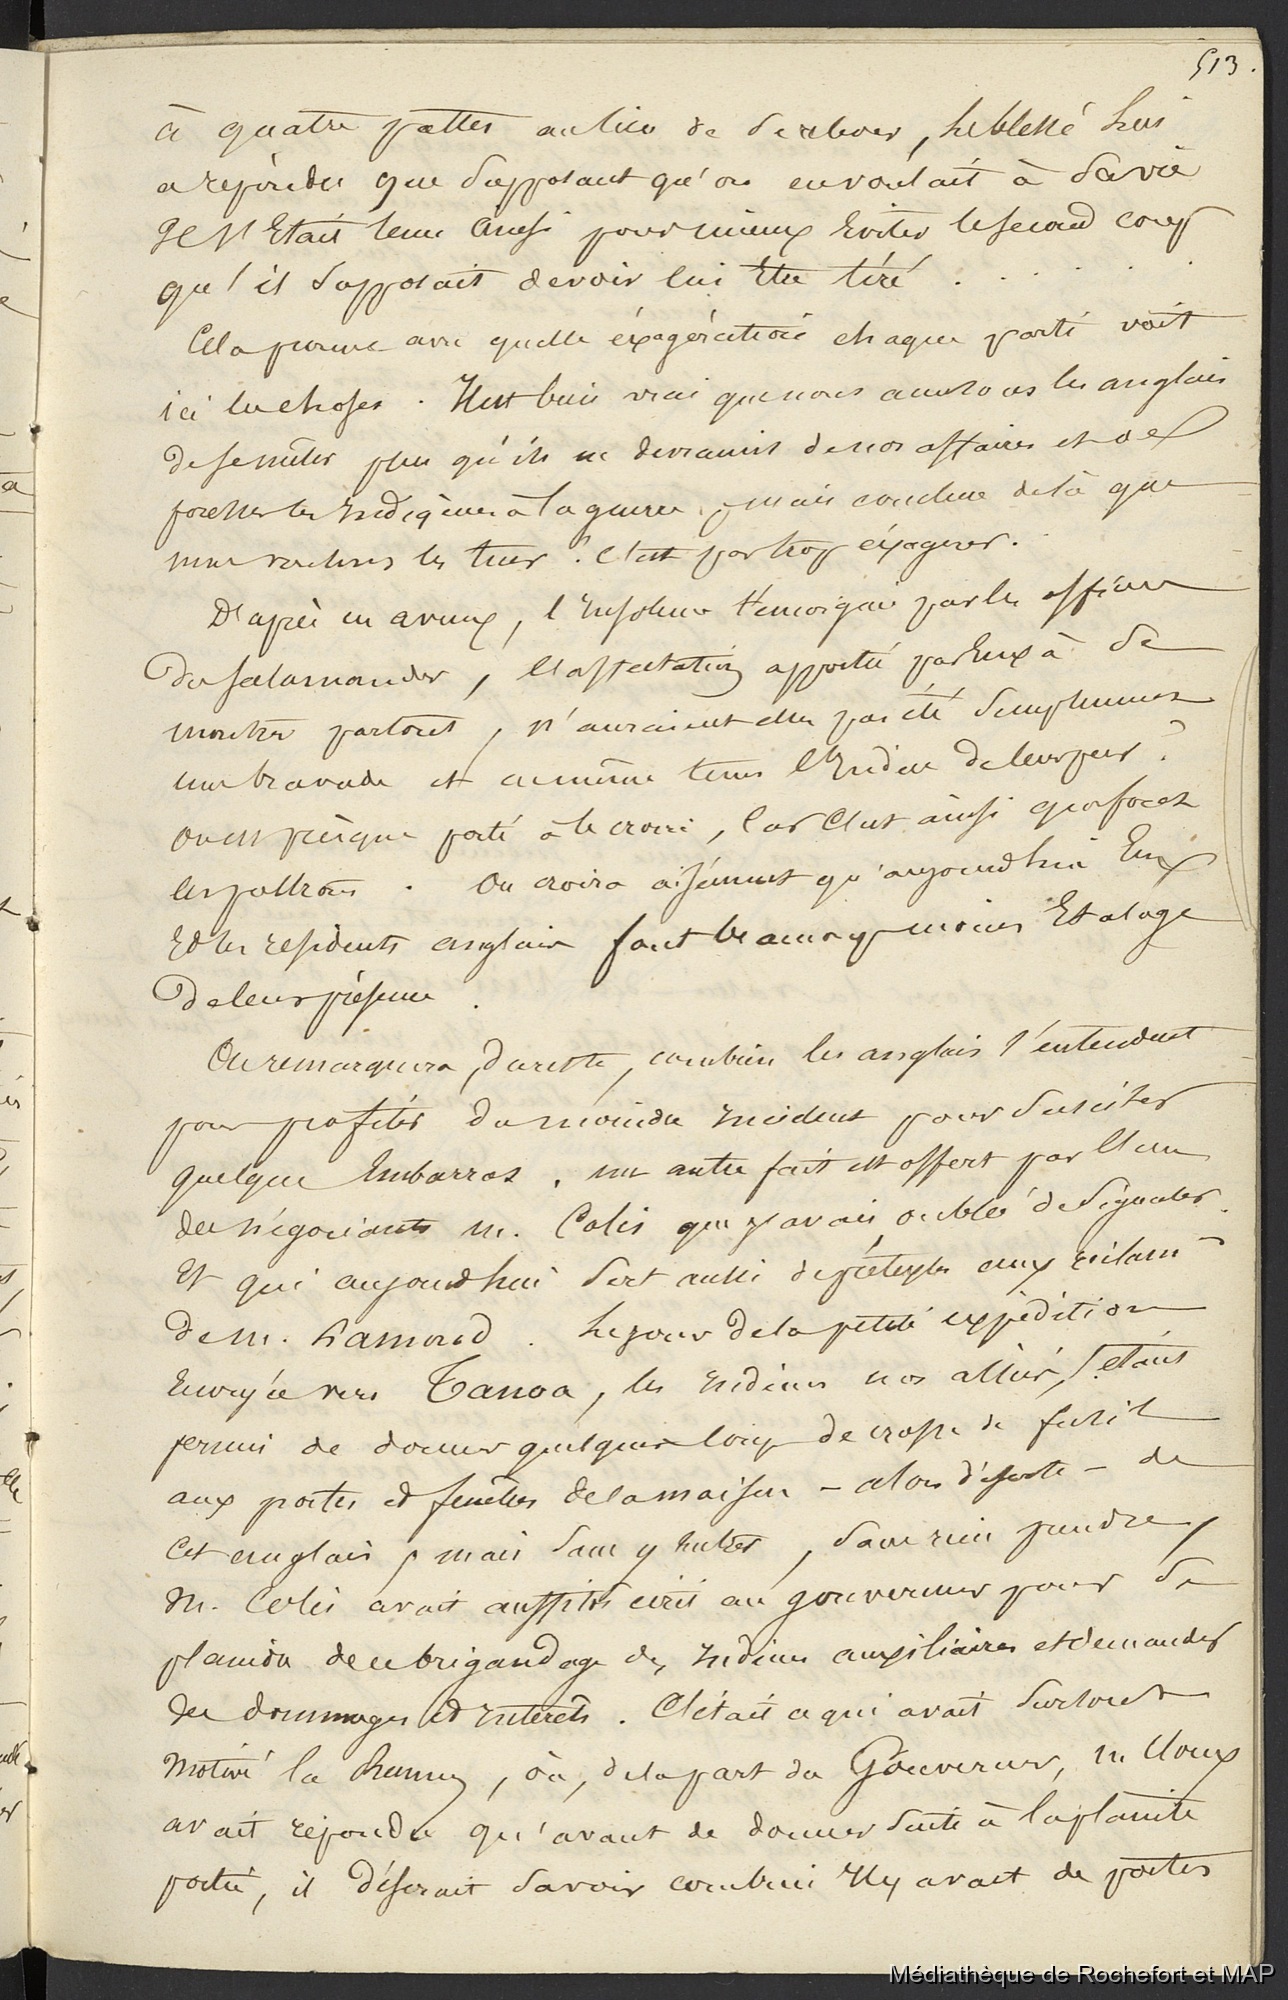 513.
à quatre pattes au lieu de se relever, le blessé lui
a répondu que supposant qu'on en voulait à sa vie
il s'était tenu ainsi pour mieux éviter le second coup
qu'il supposait devoir lui être tiré . . . . . .
Cela prouve avec quelle éxagération chaque parti voit
ici les choses. Il est bien vrai que nous accusons les anglais
de se mêler plus qu'ils ne devraient de nos affaires et de
pousser les indigènes à la guerre, mais conclure delà que
nous voulons les tuer! C'est par trop éxagerer.
D'après ces aveux, l'insolence témoignée par les officiers
du Salamander, l'affectation apportée par eux à se
montrer partout, n'auraient elles pas été simplement
une bravade et en même tems l'indice de leur peur?
on est presque porté à le croire, car c'est ainsi que font
les poltrons. On croira aisément qu'aujourd'hui eux
et les résidents anglais font beaucoup moins étalage
de leur présence.
On remarquera, du reste, combien les anglais s'entendent
pour profiter du moindre incident pour susciter
quelque embarras. un autre fait est offert par l'un
des négociants m. Colis que j'avais oublié de signaler
et qui aujourd'hui sert aussi de prétexte aux réclam
de m. hamond. Le jour de la petite expédition
envoyée vers Tanoa, les indiens nos alliés, s'étant
permis de donner quelques coups de crosse de fusil
aux portes et fenêtres de la maison – alors déserte – de
cet anglais, mais sans y entrer, sans rien prendre,
M. Colis avait aussitôt écrit au gouverneur pour se
plaindre de ce brigandage des indiens auxiliaires et demander
des dommages et intérêts. C'était ce qui avait surtout
motivé la , où, de la part du Gouverneur, m Cloux
avait répondu qu'avant de donner suite à la plainte
portée, il désirait savoir combien il y avait de portes
Médiathèque de Rochefort et MAP